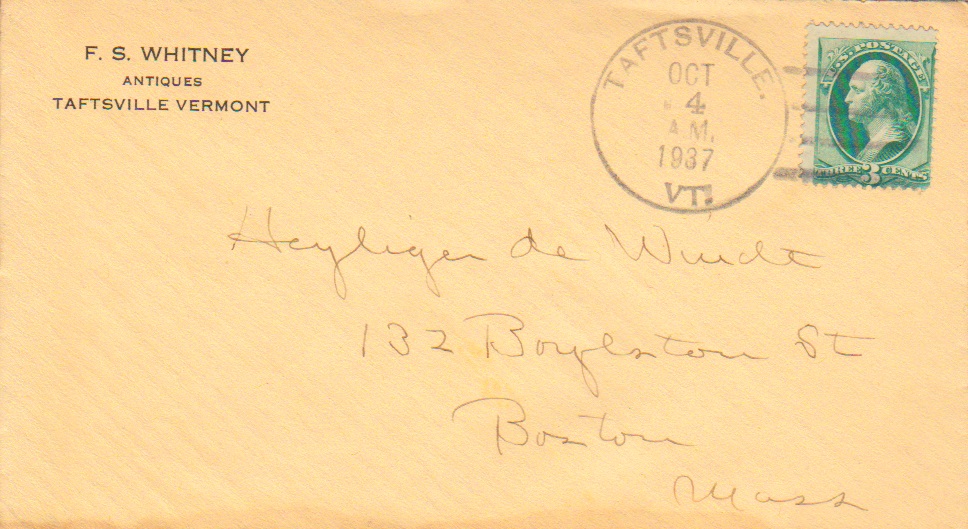 F. S. WHITNEY
ANTIQUES
TAFTSVILLE VERMONT
TAFTSVILLE.
OCT
4
A.M.
1937
VT.
U.S. POSTAGE
THREE 3 CENTS
Heyliger de Windt
132 Boylston St
Boston
Mass